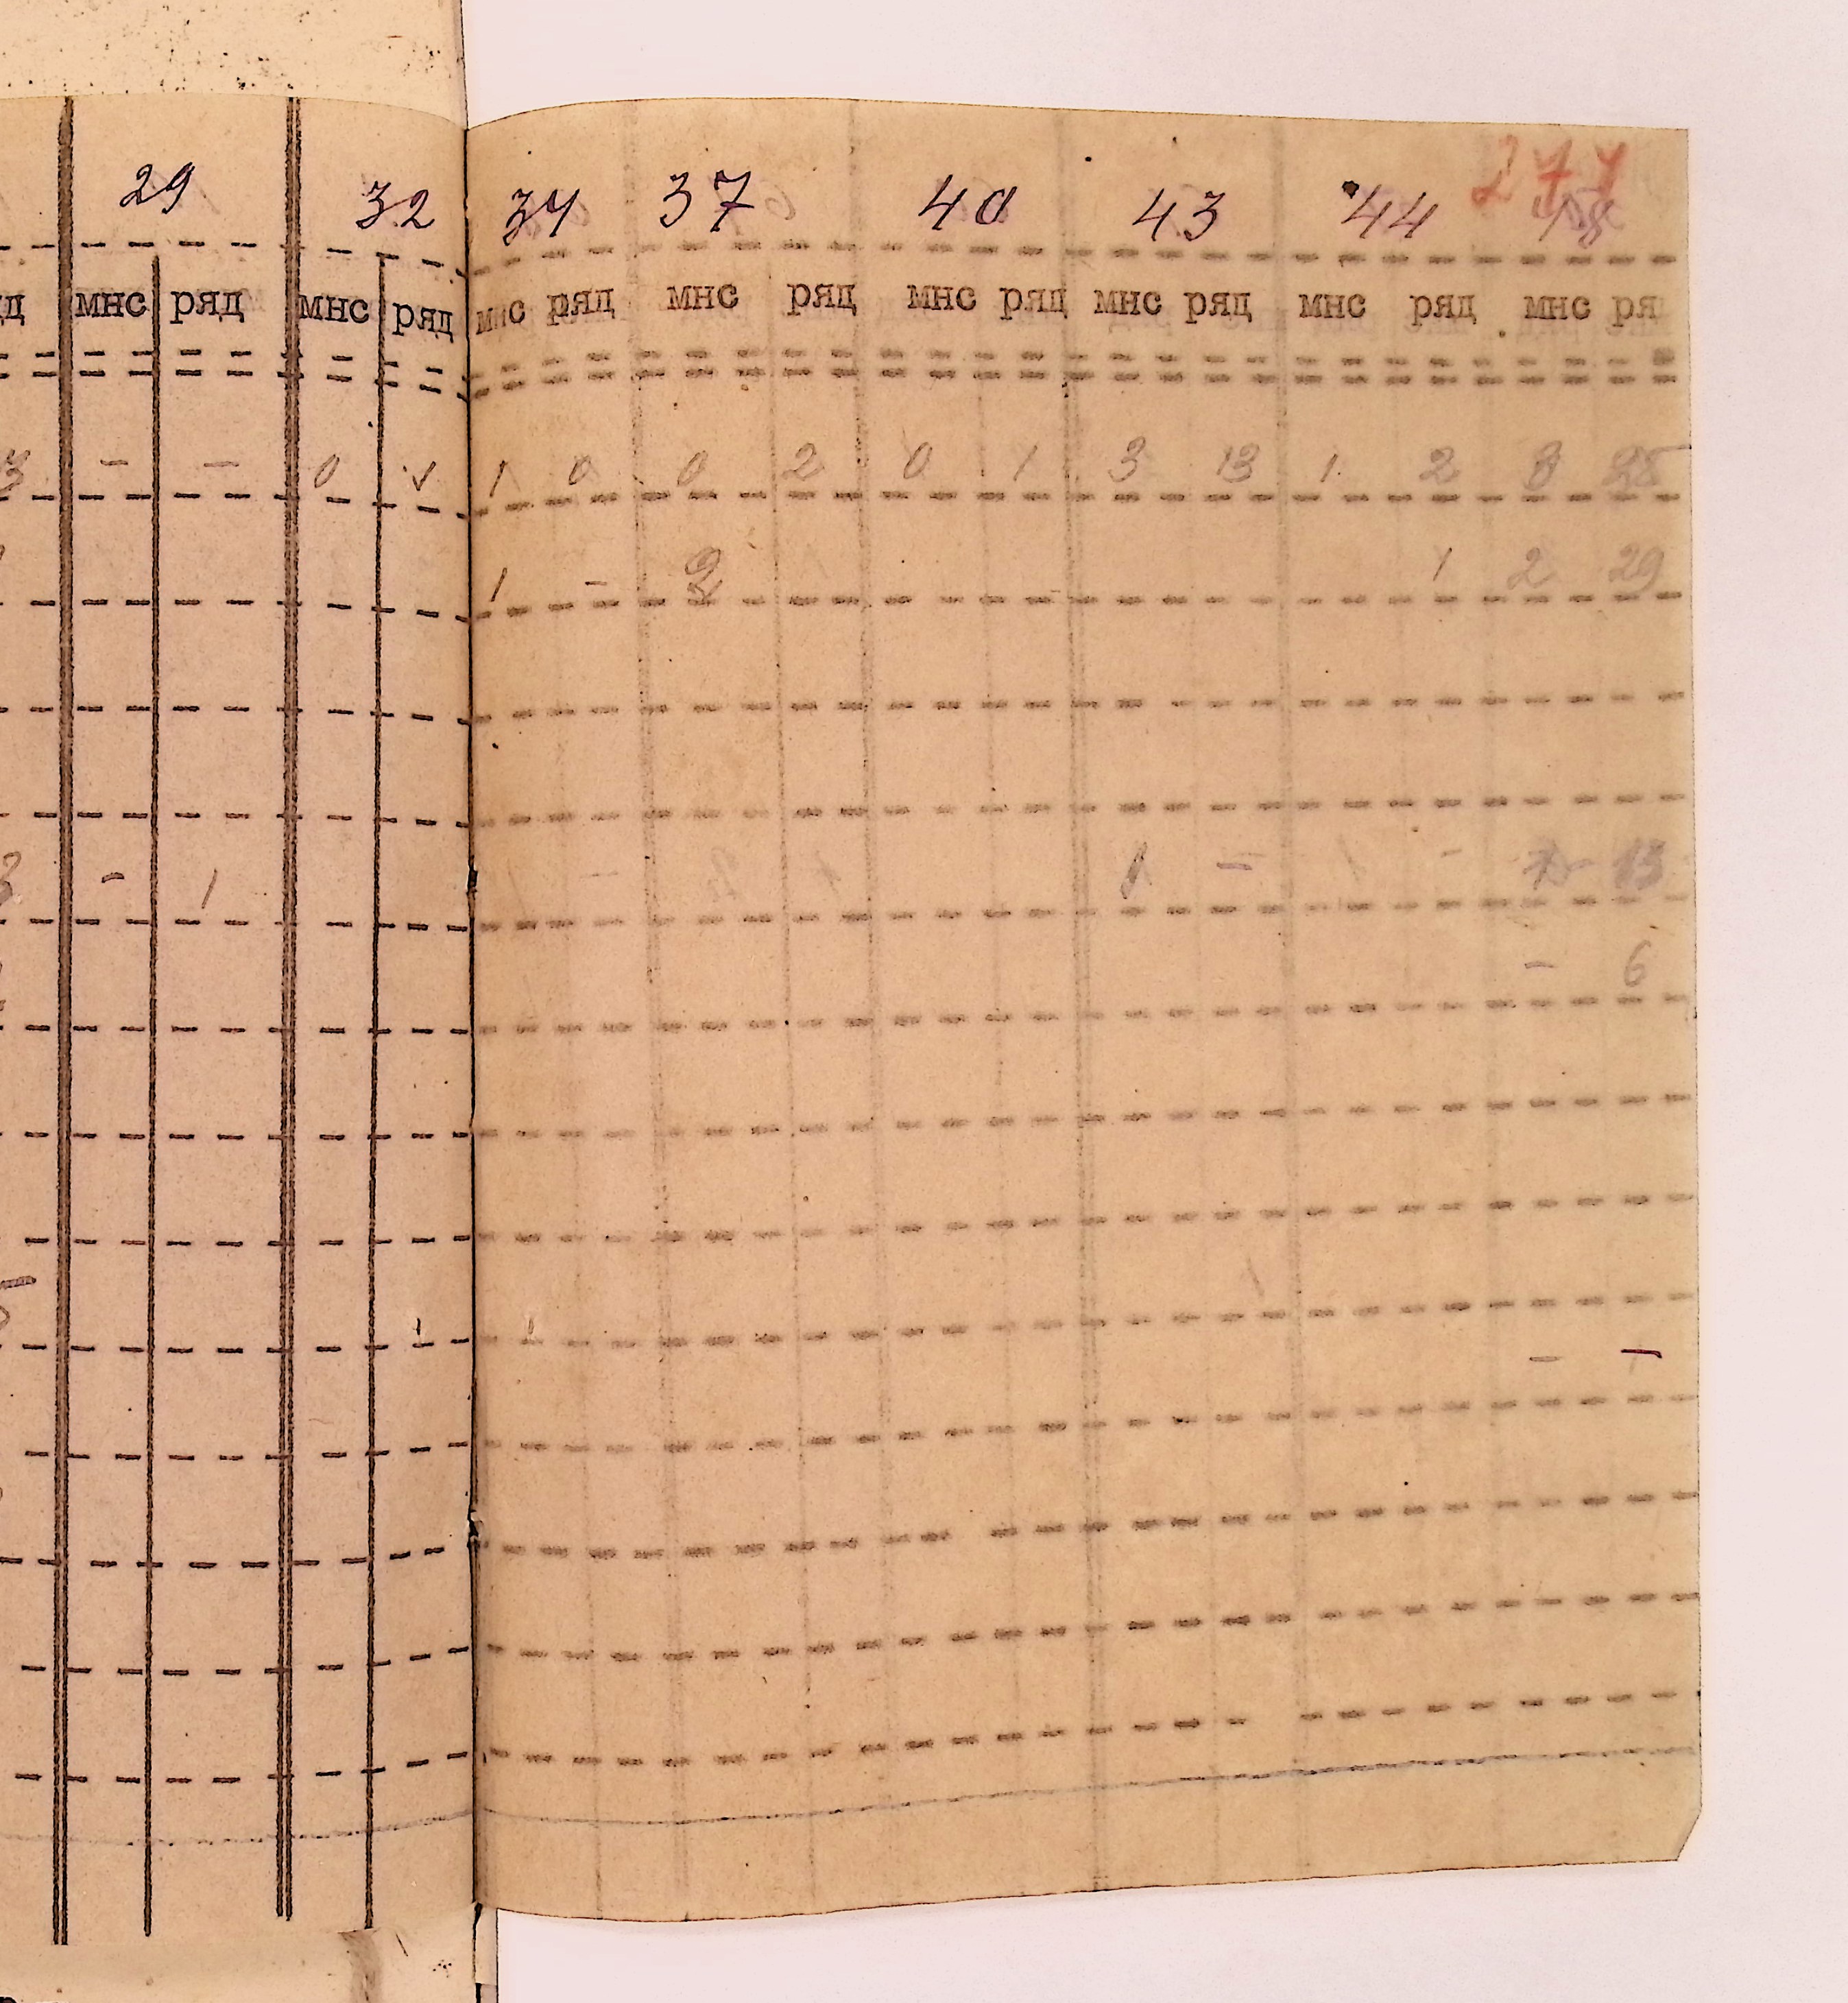 277
29 32 34 37 40 43 44
мнс ряд мнс ряд мнс ряд мнс ряд мнс ряд мнс ряд мнс ряд мнс ря
3 - - 0 1 0 0 2 0 1 3 13 1 2 8
1 - 2 1 2 29
3 - 1 1 - 13
- 6
1 1
- -